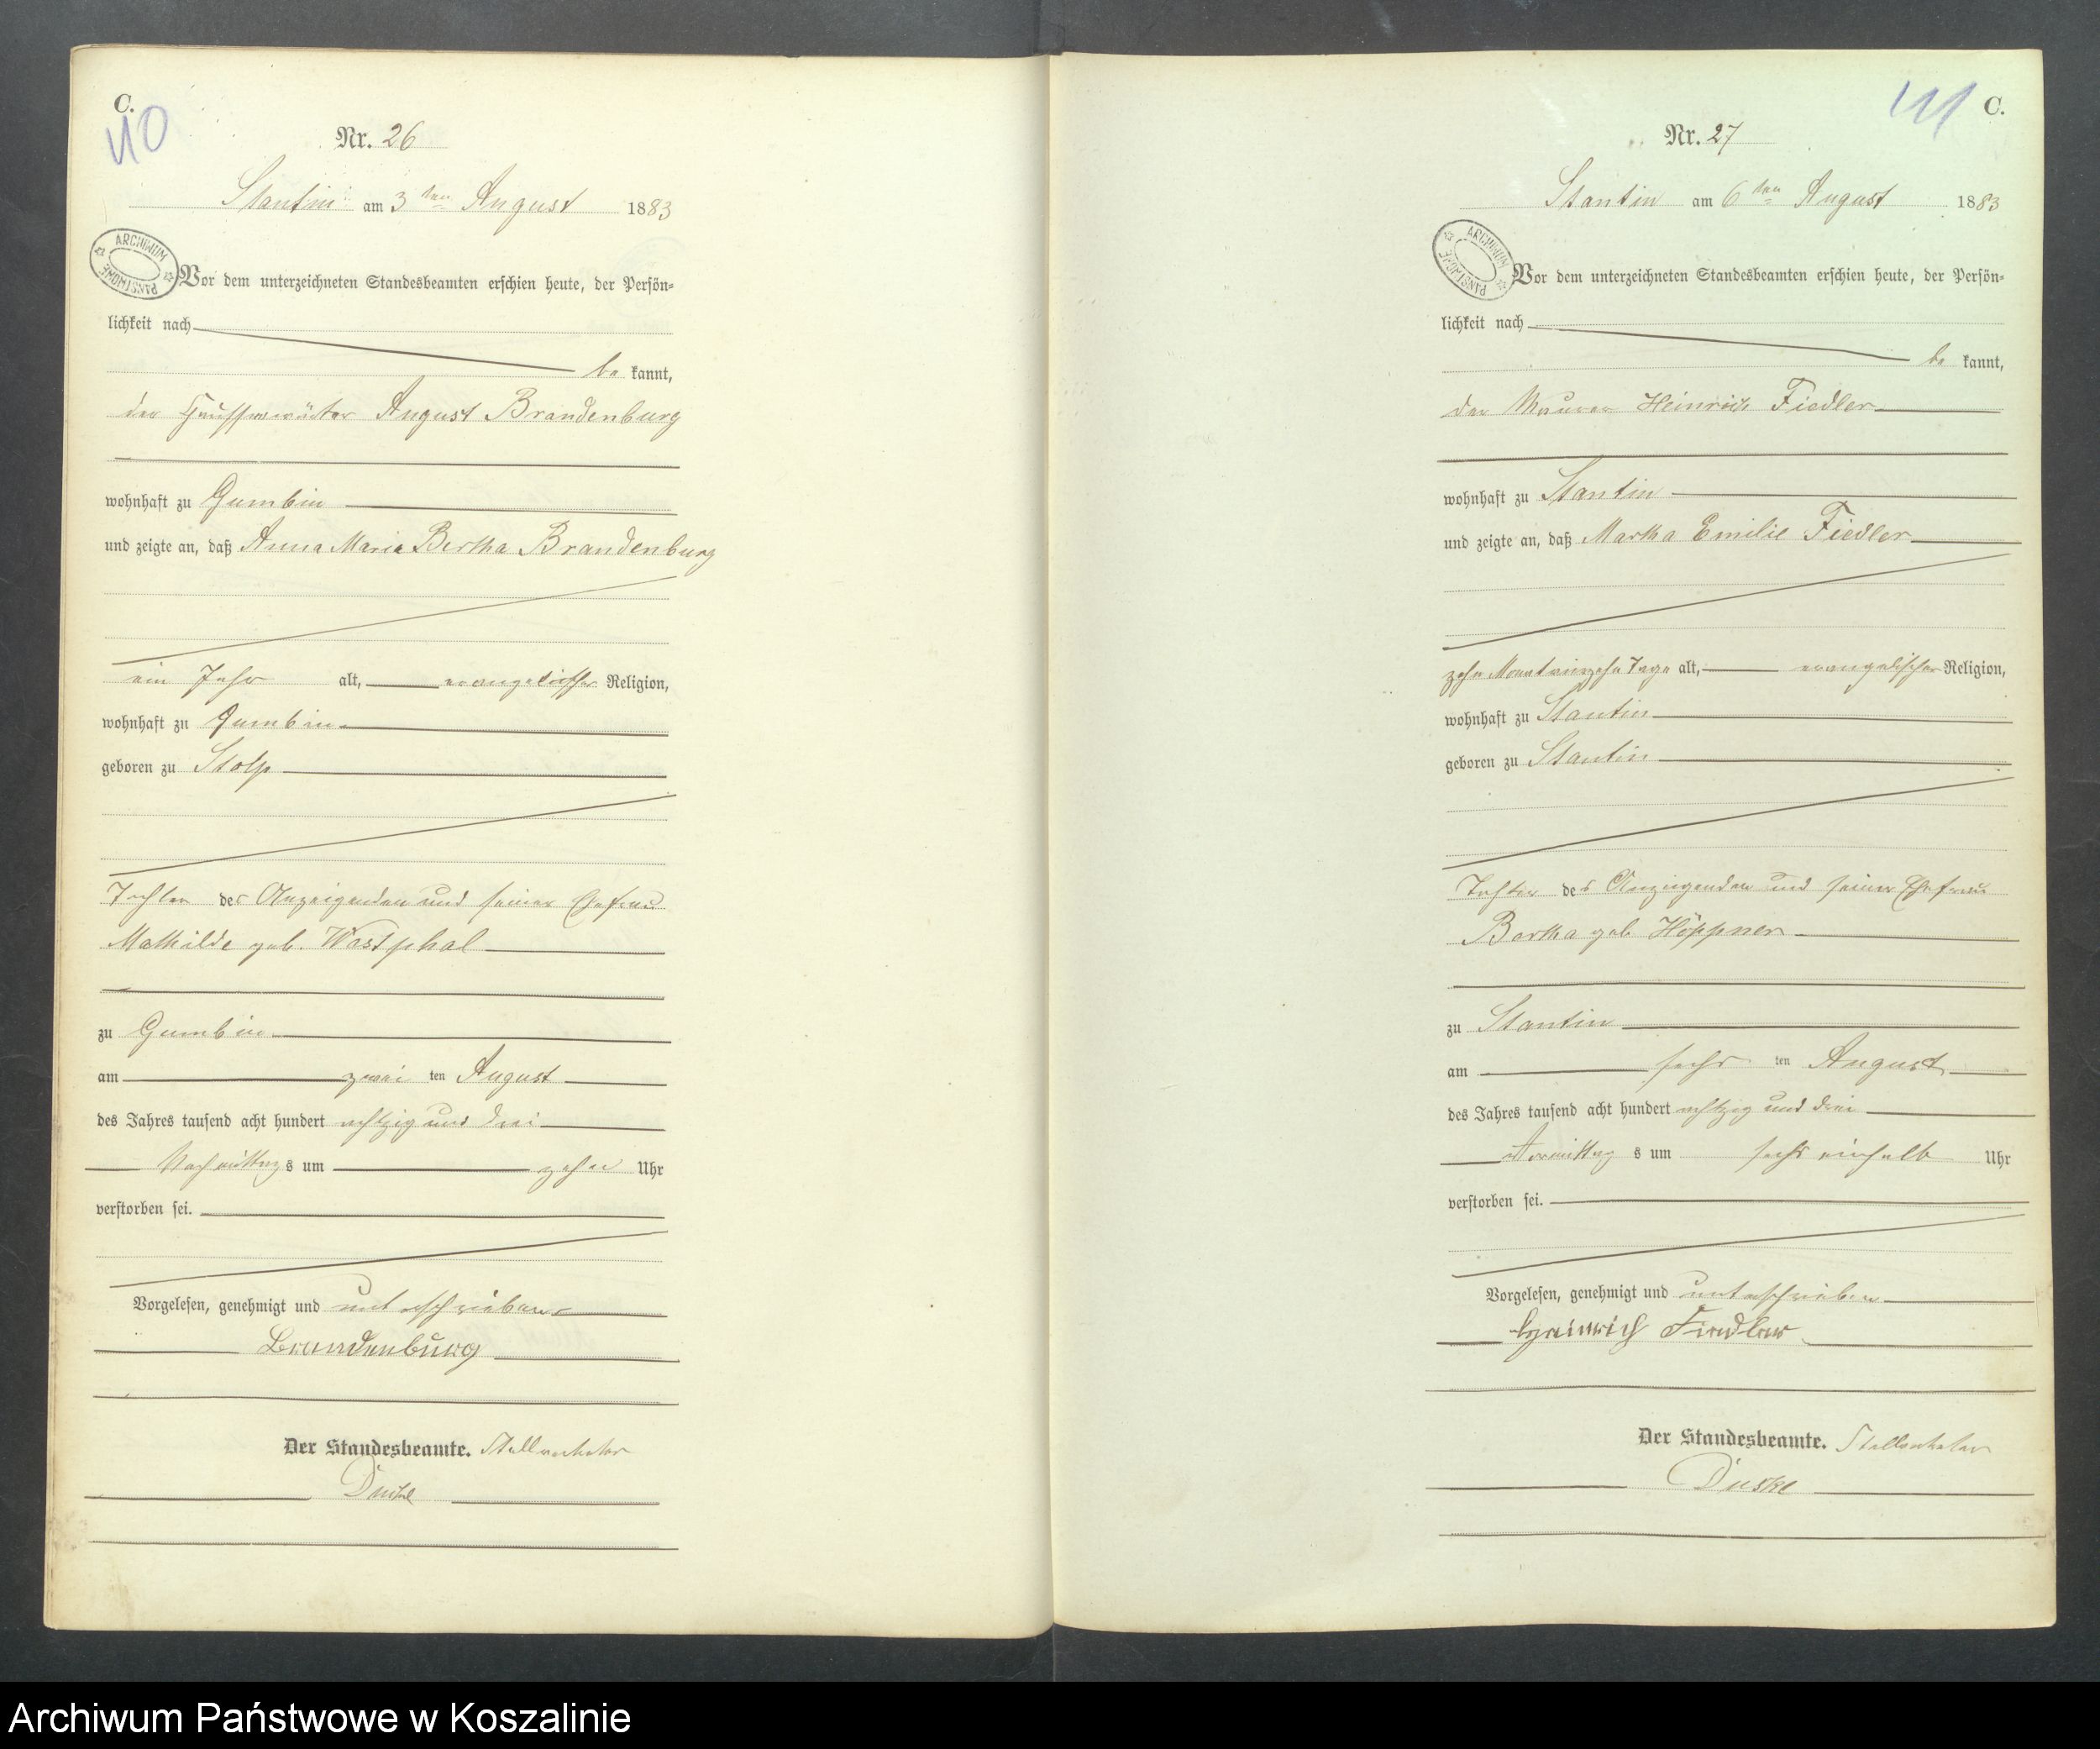 C.
40
Nr. 26
Stantin am 3 ten August 1883
ARCHIWUM PAŃSTWOWE
Vor dem unterzeichneten Standesbeamten erschien heute, der Persön=
lichkeit nach
be kannt,
der August Brandenburg
wohnhaft zu Gumbin
und zeigte an, daß Anna Maria Bertha Brandenburg
ein Jahr alt, evangelischer Religion,
wohnhaft zu Gumbin
geboren zu Stolp
Tochter des Anzeigenden und seiner Ehefrau
Mathilde geb. Westphal
zu Gumbin
am zwei ten August
des Jahres tausend acht hundert achtzig und drei
Nachmittags um zehn Uhr
verstorben sei.
Vorgelesen, genehmigt und unterschrieben
Brandenburg
Der Standesbeamte. Stellvertreter
C.
41
Nr. 27
Stantin am 6 ten August 1883
ARCHIWUM PAŃSTWOWE
Vor dem unterzeichneten Standesbeamten erschien heute, der Persön=
lichkeit nach
be kannt,
der Maurer Heinrich Fiedler
wohnhaft zu Stantin
und zeigte an, daß Martha Emilie Fiedler
zehn Monat Tage alt, evangelischer Religion,
wohnhaft zu Stantin
geboren zu Stantin
Tochter des Anzeigenden und seiner Ehefrau
Bertha geb Höppner
zu Stantin
am sechs ten August
des Jahres tausend acht hundert achtzig und drei
Vormittag s um sechs einhalb Uhr
verstorben sei.
Vorgelesen, genehmigt und unterschrieben
Heinrich Fiedler
Der Standesbeamte. Stellvertreter
Archiwum Państwowe w Koszalinie